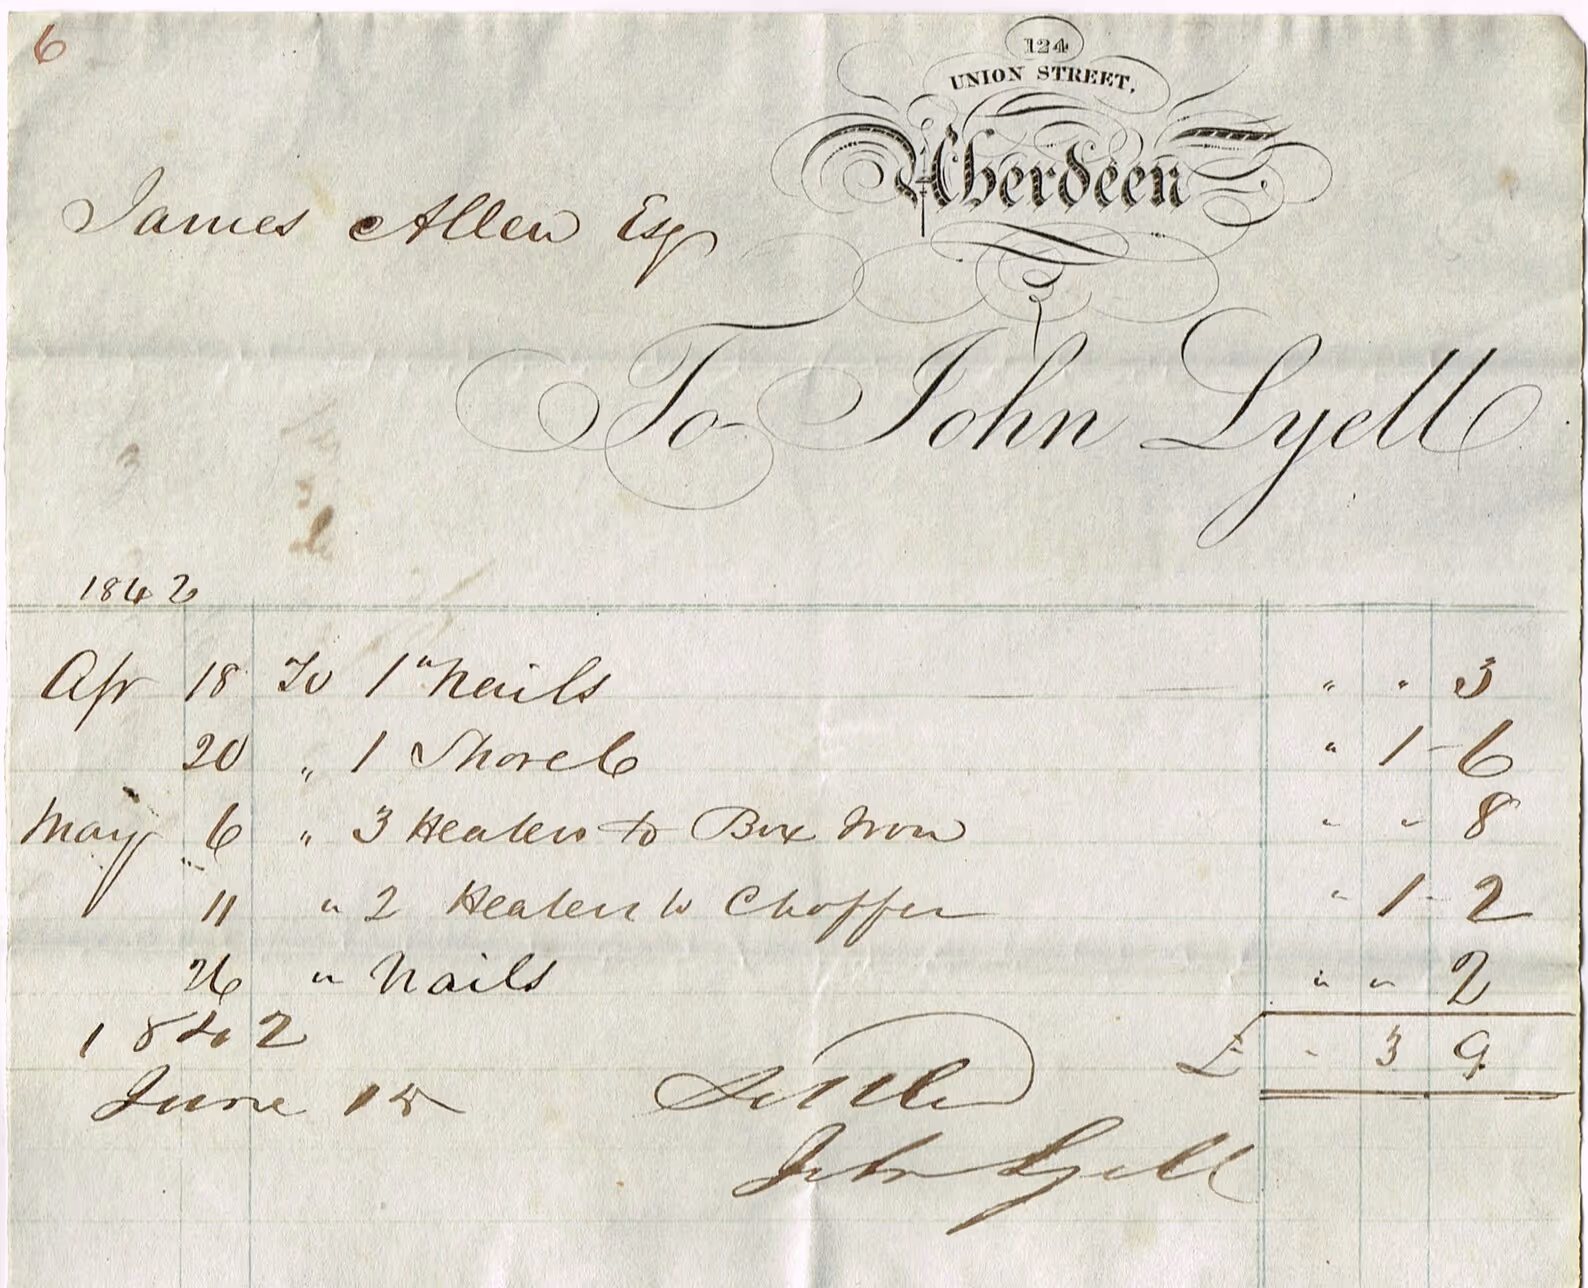 6
124
UNION STREET,
Aberdeen
James Allen Esq
To John Lyell
1842
Apr 18 To 1" Nails " " 3
20 " 1 Shovel " 1 - 6
May 6 " 3 Heaters to Box Iron " " 8
11 " 2 Heaters to Choffer " 1 - 2
26 " Nails " " 2
£ " 3 9
1842
June 15 Settled
John Lyell